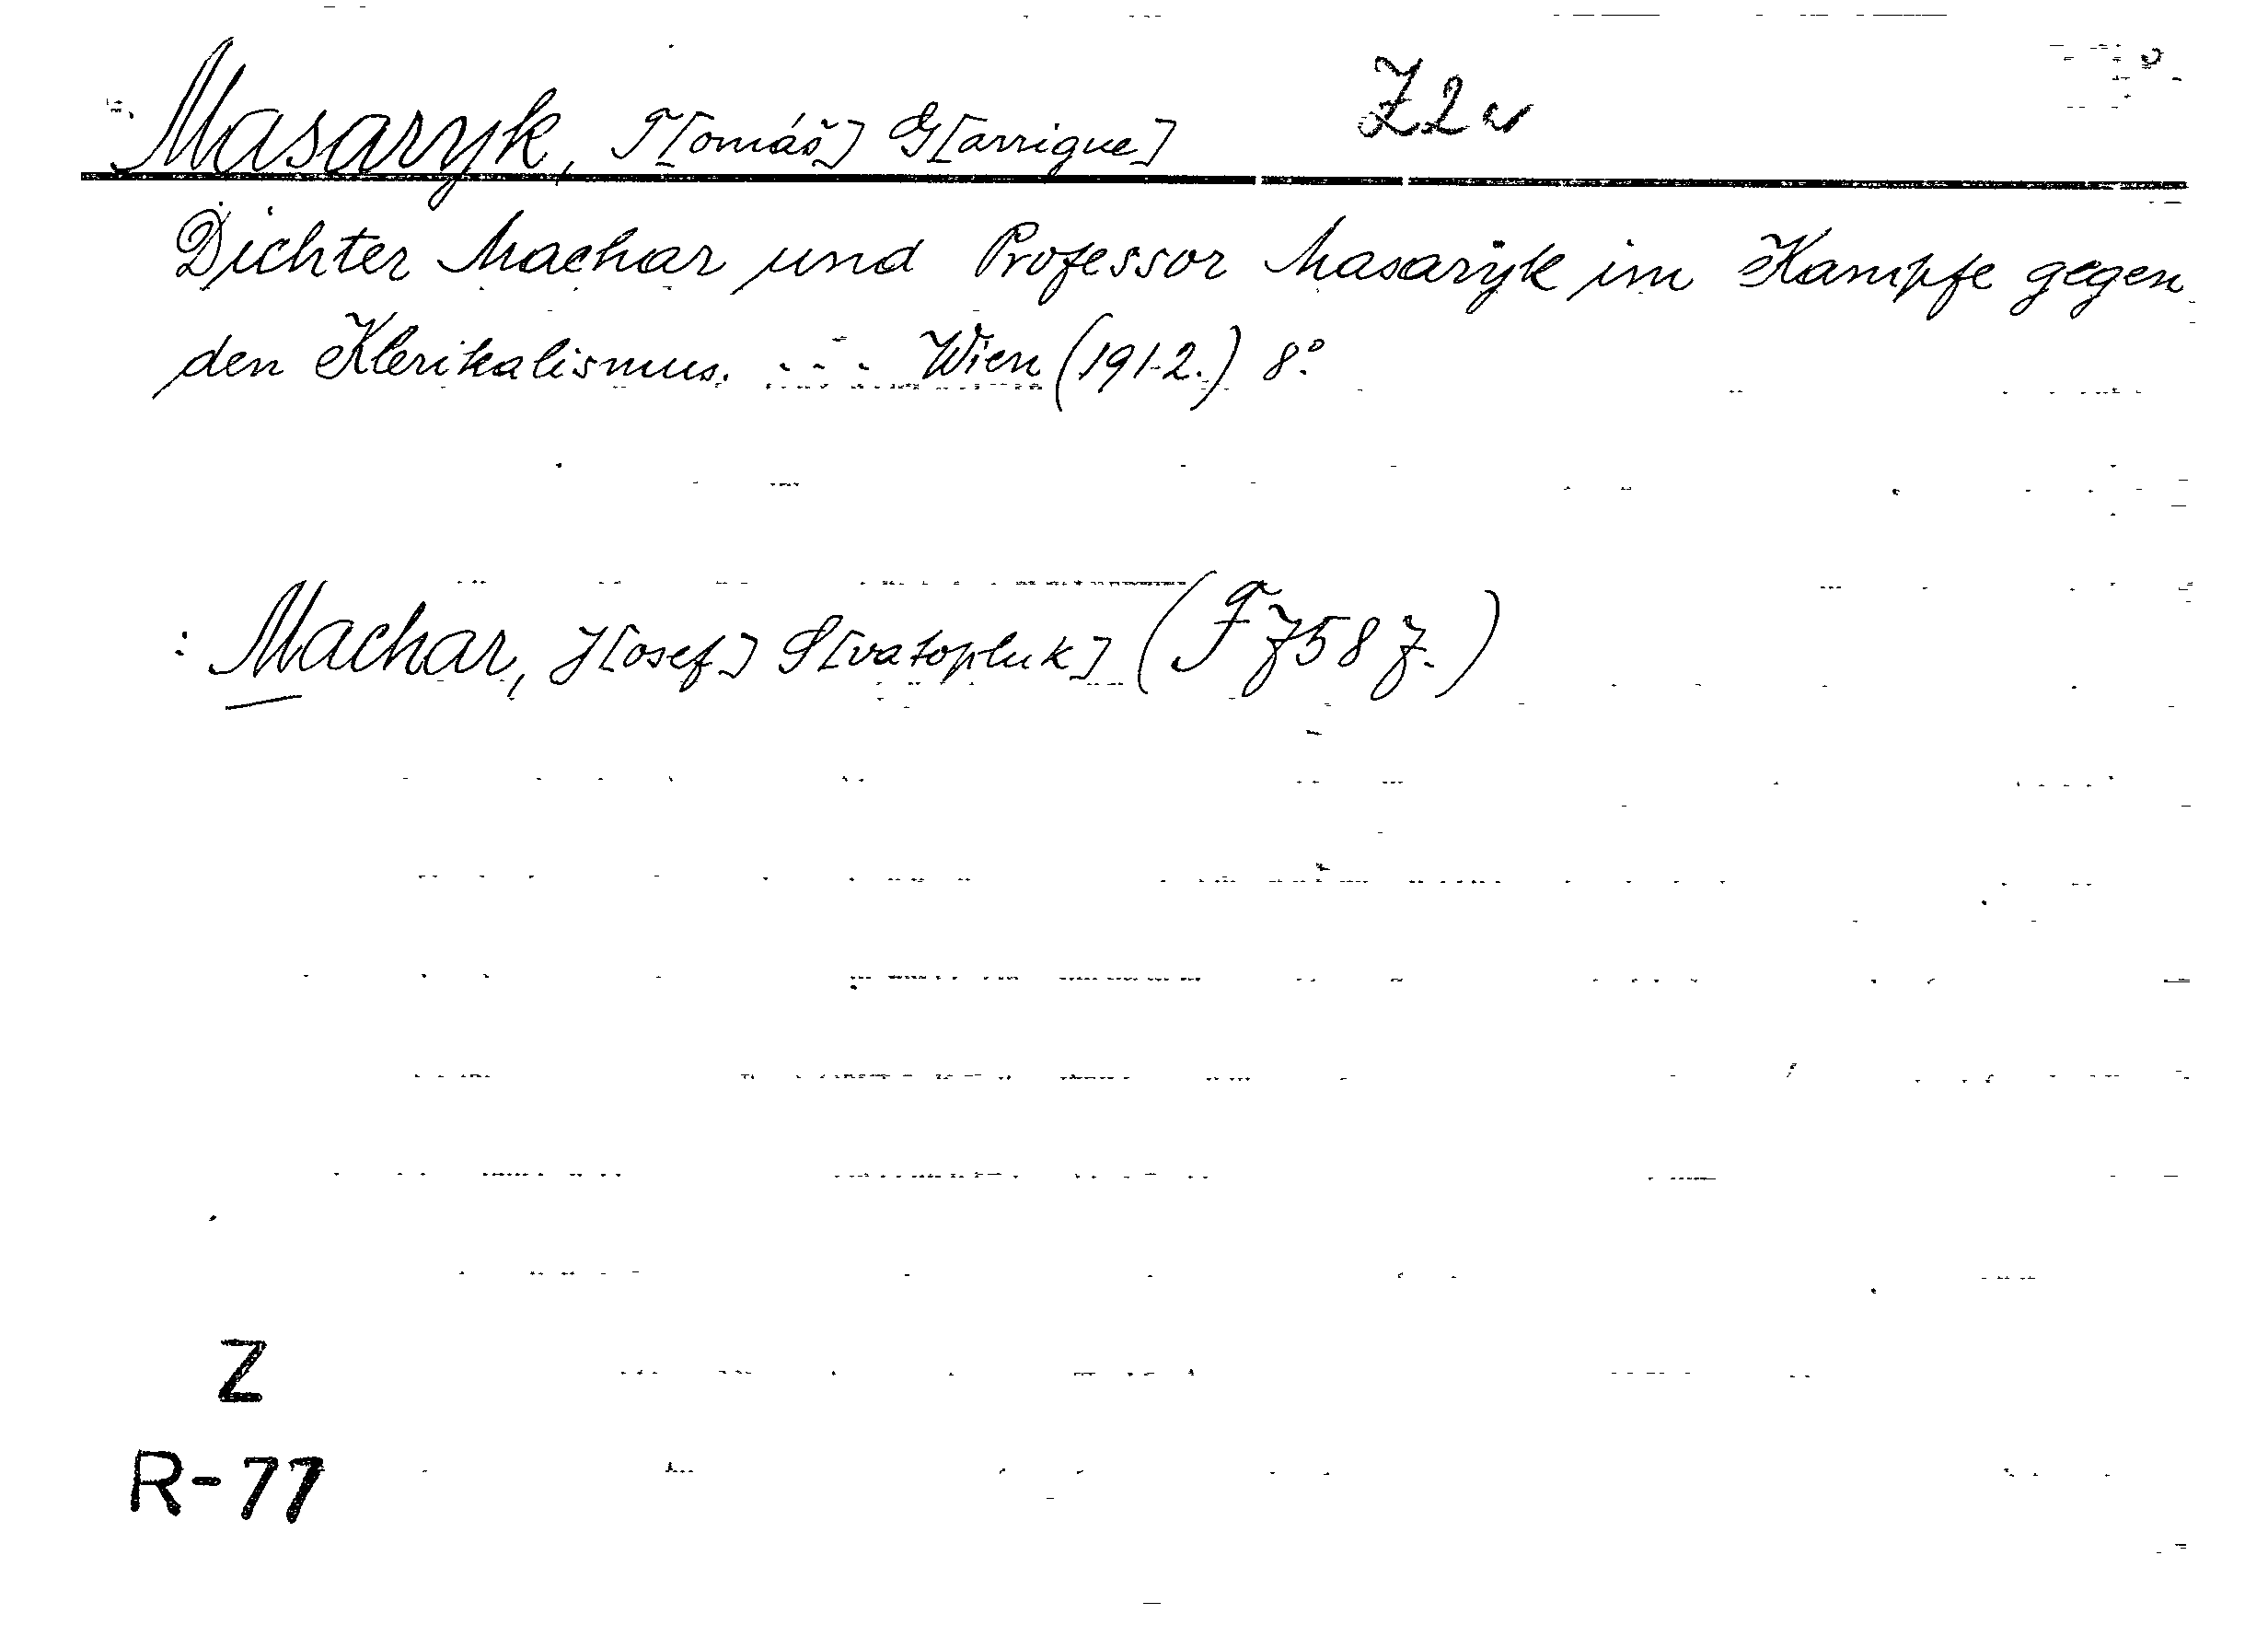 Masaryk, T[omáš] G[arrigue] Z2w
Dichter Machar und Professor Masaryk im Kampfe gegen
den Klerikalismus. - - - Wien (191-2.) 8°.
: Machar, J[osef] S[vatopluk] (F 758 7.)
Z
R-77